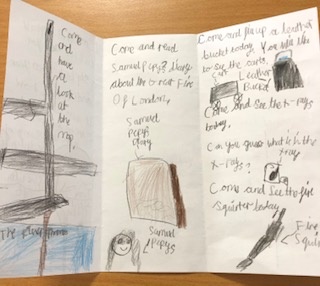 Come
and
have
a
look
at
the
map.
The river
Come and read
Samuel Pepys? diary
about the Great Fire
Of London.
Samuel
Pepys
diary
Samuel
Pepys
Come and fill up a leather
bucket today. You
to see the carts.
Cart
Leather
Bucket
Come and See the X-rays
today.
Can you guess what is in the
X-rays?
xray
Come and See the fire
squirter today
Fire